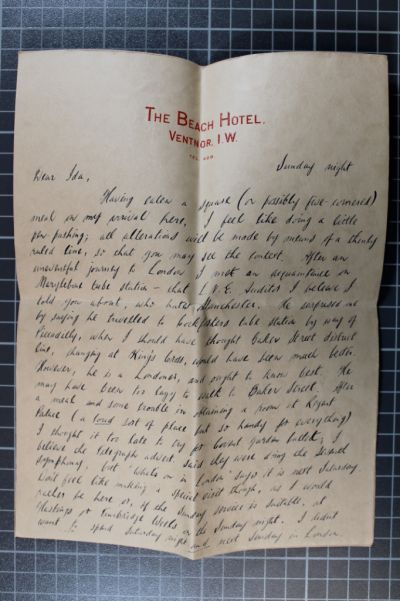 THE BEACH HOTEL,
VENTNOR, I.W.
TEL.
Sunday night
Dear Ida,
Having eaten a square (or possibly five-cornered)
meal on my arrival here, I feel like doing a little
pen pushing; all alterations will be made by means of a
ruled line, so that you may see the context. After an
uneventful journey to London I met an acquaintance in
Marylebone tube station - that L.N.E. I believe I
told you about, who hates Manchester. He surprised me
by saying he travelled to tube station by way of
Piccadilly, when I should have thought Baker Street district
line, changing at Kings Cross, would have been much better.
However, he is a Londoner, and ought to know best. He
may have been too lazy to walk to Baker Street. After
a meal and some trouble in obtaining a room at Regent
Palace (a loud sort of place but so handy for everything)
I thought it too late to try for Covent Garden ballet; I
believe the telegraph advert said they were doing the Seventh
Symphony, but "What's on in London" says it is next Saturday.
Don't feel like making a special visit though, as I would
rather be here or, if the Sunday service is suitable, at
Hastings or Tunbridge Wells on the Sunday night. I don't
want to spend Saturday night and next Sunday in London.